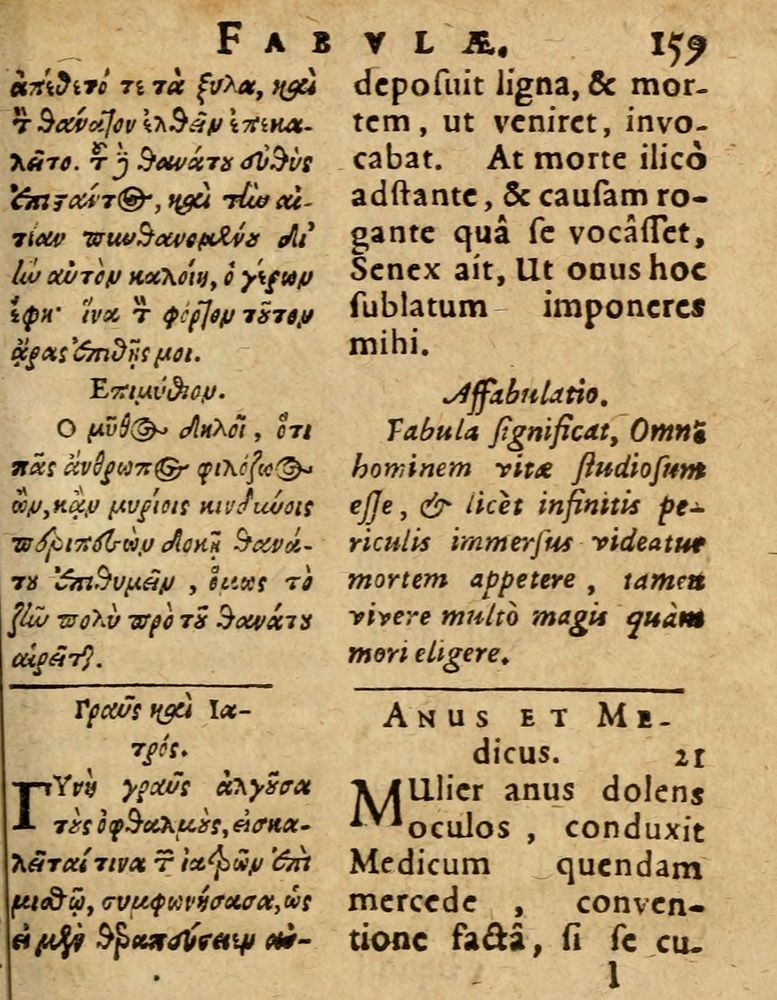 FABVLÆ. 159
ἀπέθετό τε τὰ ξύλα, καὶ
τὸν θάνατον ἐλθεῖν ἐπεκα-
λεῖτο. τοῦ δὲ θανάτου εὐθὺς
ἐπιστάντος, καὶ τὴν αἰ-
τίαν πυνθανομένου δι'
ἣν αὐτὸν καλοίη, ὁ γέρων
ἔφη· ἵνα τὸν φόρτον τοῦτον
ἄρας ἐπιθῇς μοι.
Επιμύθιον.
Ο μῦθος δηλοῖ, ὅτι
πᾶς ἄνθρωπος φιλόζωος
ὢν, κἂν μυρίοις κινδύνοις
περιπεσὼν δοκῇ θανά-
του ἐπιθυμεῖν, ὅμως τὸ
ζῆν πολὺ πρὸ τοῦ θανάτου
αἱρεῖται.
Γραῦς καὶ Ια-
τρός.
ΓΥνὴ γραῦς ἀλγοῦσα
τοὺς ὀφθαλμοὺς, εἰσκα-
λεῖταί τινα τῶν ἰατρῶν ἐπὶ
μισθῷ, συμφωνήσασα, ὡς
εἰ μὲν θεραπεύσειεν αὐ-
deposuit ligna, & mor-
tem, ut veniret, invo-
cabat. At morte ilicò
adstante, & causam ro-
gante quâ se vocâsset,
Senex ait, Ut onus hoc
sublatum imponeres
mihi.
Affabulatio.
Fabula significat, Omnē
hominem vitæ studiosum
esse, & licèt infinitis pe-
riculis immersus videatur
mortem appetere, tamen
vivere multò magis quàm
mori eligere.
ANUS ET ME-
dicus. 21
MUlier anus dolens
oculos, conduxit
Medicum quendam
mercede, conven-
tione factâ, si se cu-
l